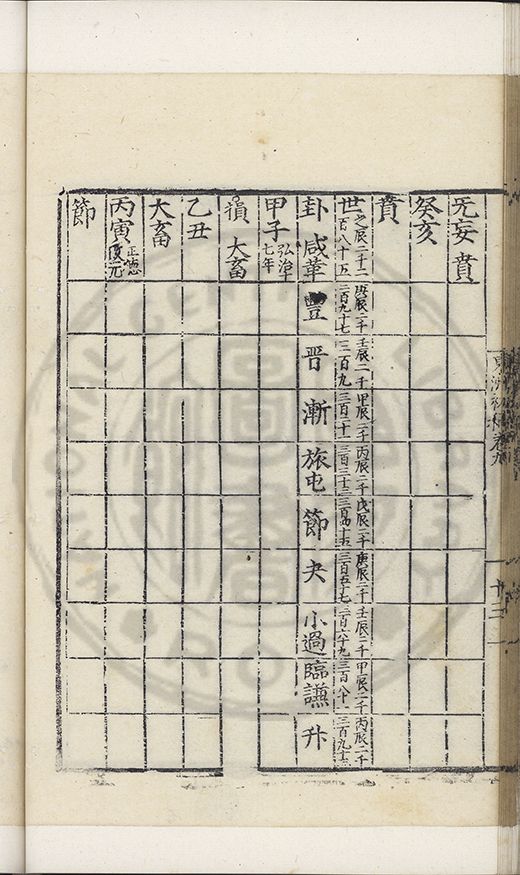 无妄 賁
癸亥
賁
世 之辰二千二百八十五 庚辰二千二百九十七 壬辰二千三百九 甲辰二千三百二十一 丙辰二千三百三十三 戊辰二千三百四十五 庚辰二千三百五十七 壬辰二千三百六十九 甲辰二千三百八十一 丙辰二千三百九十三
卦 咸革 豐 晋 漸 旅屯 節 夬 小過臨謙 升
甲子 弘治十七年
損 大畜
乙丑
大畜
丙寅 正德改元
節